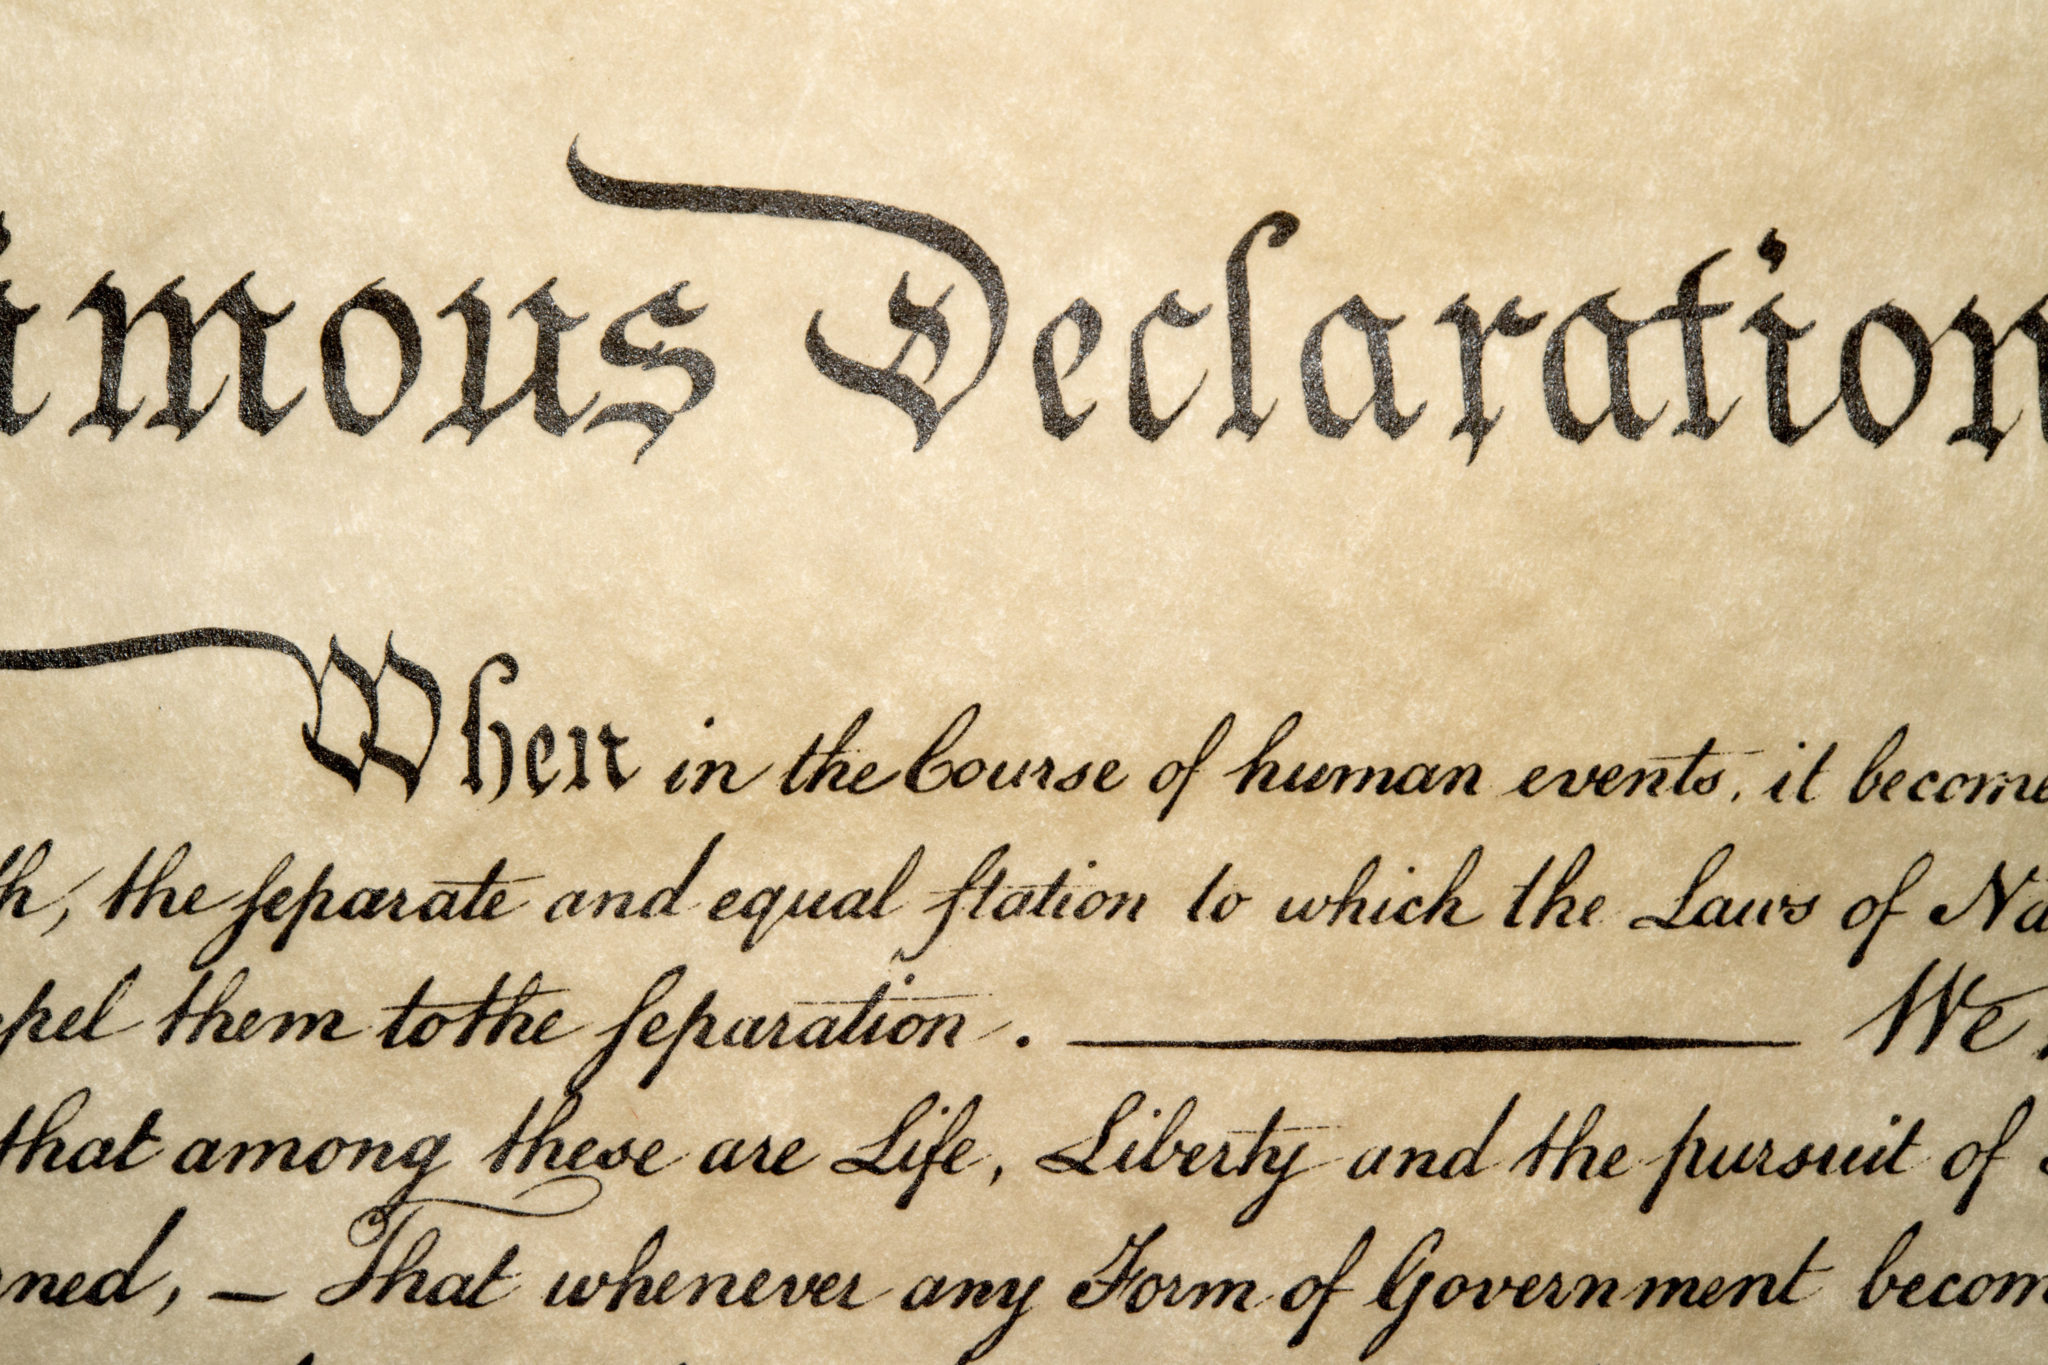 imous Declaration
When in the Course of human events, it become
th, the separate and equal station to which the Laws of Na
pel them to the separation.
We
that among these are Life, Liberty and the pursuit of
rned, — That whenever any Form of Government becom